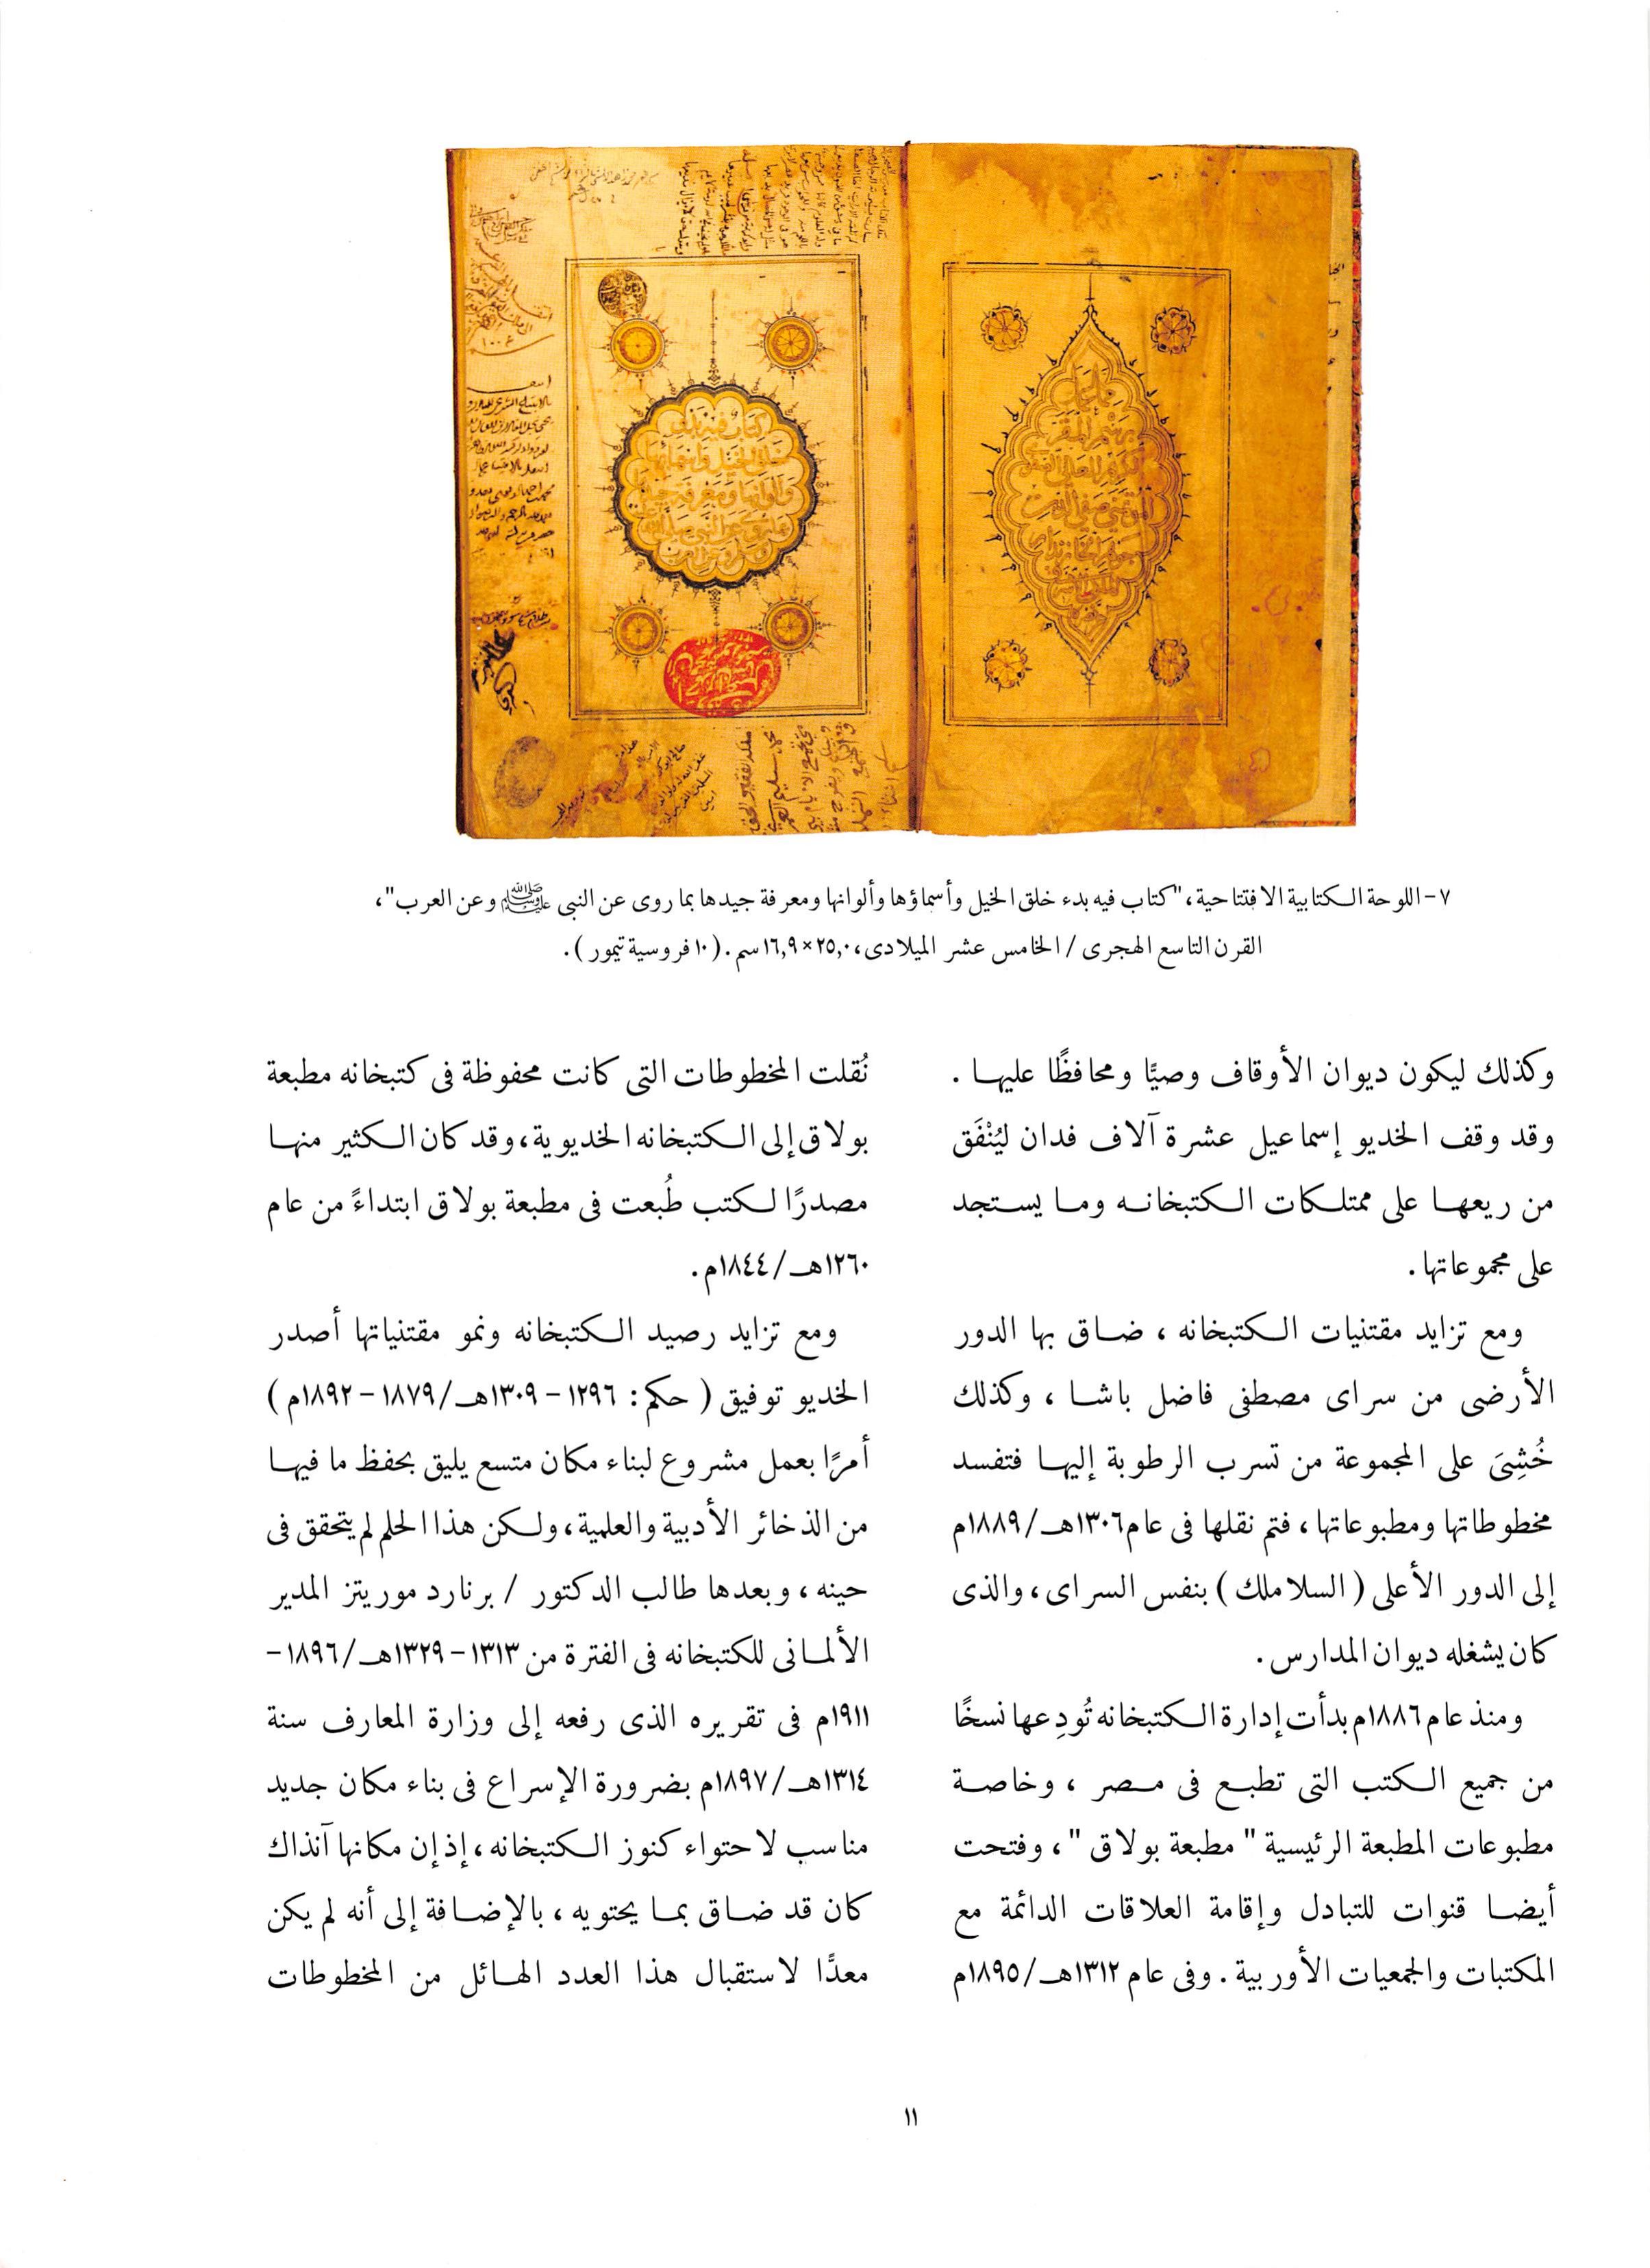 كتاب فيه بدء
خلق الخيل وأسمائها
وألوانها ومعرفة جيدها
٧- اللوحة الكتابية الافتتاحية، "كتاب فيه بدء خلق الخيل وأسماؤها وألوانها ومعرفة جيدها بما روى عن النبى ﷺ وعن العرب"،
القرن التاسع الهجرى / الخامس عشر الميلادى، ٢٥,٠×١٦,٩سم. (١٠ فروسية تيمور).
وكذلك ليكون ديوان الأوقاف وصيًّا ومحافظًا عليها .
وقد وقف الخديو إسماعيل عشرة آلاف فدان ليُنْفَق
من ريعها على ممتلكات الكتبخانه وما يستجد
على مجموعاتها.
ومع تزايد مقتنيات الكتبخانه ، ضاق بها الدور
الأرضى من سراى مصطفى فاضل باشا ، وكذلك
خُشِىَ على المجموعة من تسرب الرطوبة إليها فتفسد
مخطوطاتها ومطبوعاتها ، فتم نقلها فى عام ١٣٠٦هـ/١٨٨٩م
إلى الدور الأعلى ( السلاملك ) بنفس السراى ، والذى
كان يشغله ديوان المدارس .
ومنذ عام ١٨٨٦م بدأت إدارة الكتبخانه تُودِعها نسخًا
من جميع الكتب التى تطبع فى مصر ، وخاصة
مطبوعات المطبعة الرئيسية " مطبعة بولاق " ، وفتحت
أيضا قنوات للتبادل وإقامة العلاقات الدائمة مع
المكتبات والجمعيات الأوربية . وفى عام ١٣١٢هـ/١٨٩٥م
نُقلت المخطوطات التى كانت محفوظة فى كتبخانه مطبعة
بولاق إلى الكتبخانه الخديوية، وقد كان الكثير منها
مصدرًا لكتب طُبعت فى مطبعة بولاق ابتداءً من عام
١٢٦٠هـ/١٨٤٤م.
ومع تزايد رصيد الكتبخانه ونمو مقتنياتها أصدر
الخديو توفيق ( حكم: ١٢٩٦ - ١٣٠٩هـ/١٨٧٩ - ١٨٩٢م )
أمرًا بعمل مشروع لبناء مكان متسع يليق بحفظ ما فيها
من الذخائر الأدبية والعلمية، ولكن هذا الحلم لم يتحقق فى
حينه ، وبعدها طالب الدكتور / برنارد موريتز المدير
الألمانى للكتبخانه فى الفترة من ١٣١٣ - ١٣٢٩هـ/١٨٩٦ -
١٩١١م فى تقريره الذى رفعه إلى وزارة المعارف سنة
١٣١٤هـ/١٨٩٧م بضرورة الإسراع فى بناء مكان جديد
مناسب لاحتواء كنوز الكتبخانه ، إذ إن مكانها آنذاك
كان قد ضاق بما يحتويه ، بالإضافة إلى أنه لم يكن
معدًّا لاستقبال هذا العدد الهائل من المخطوطات
١١